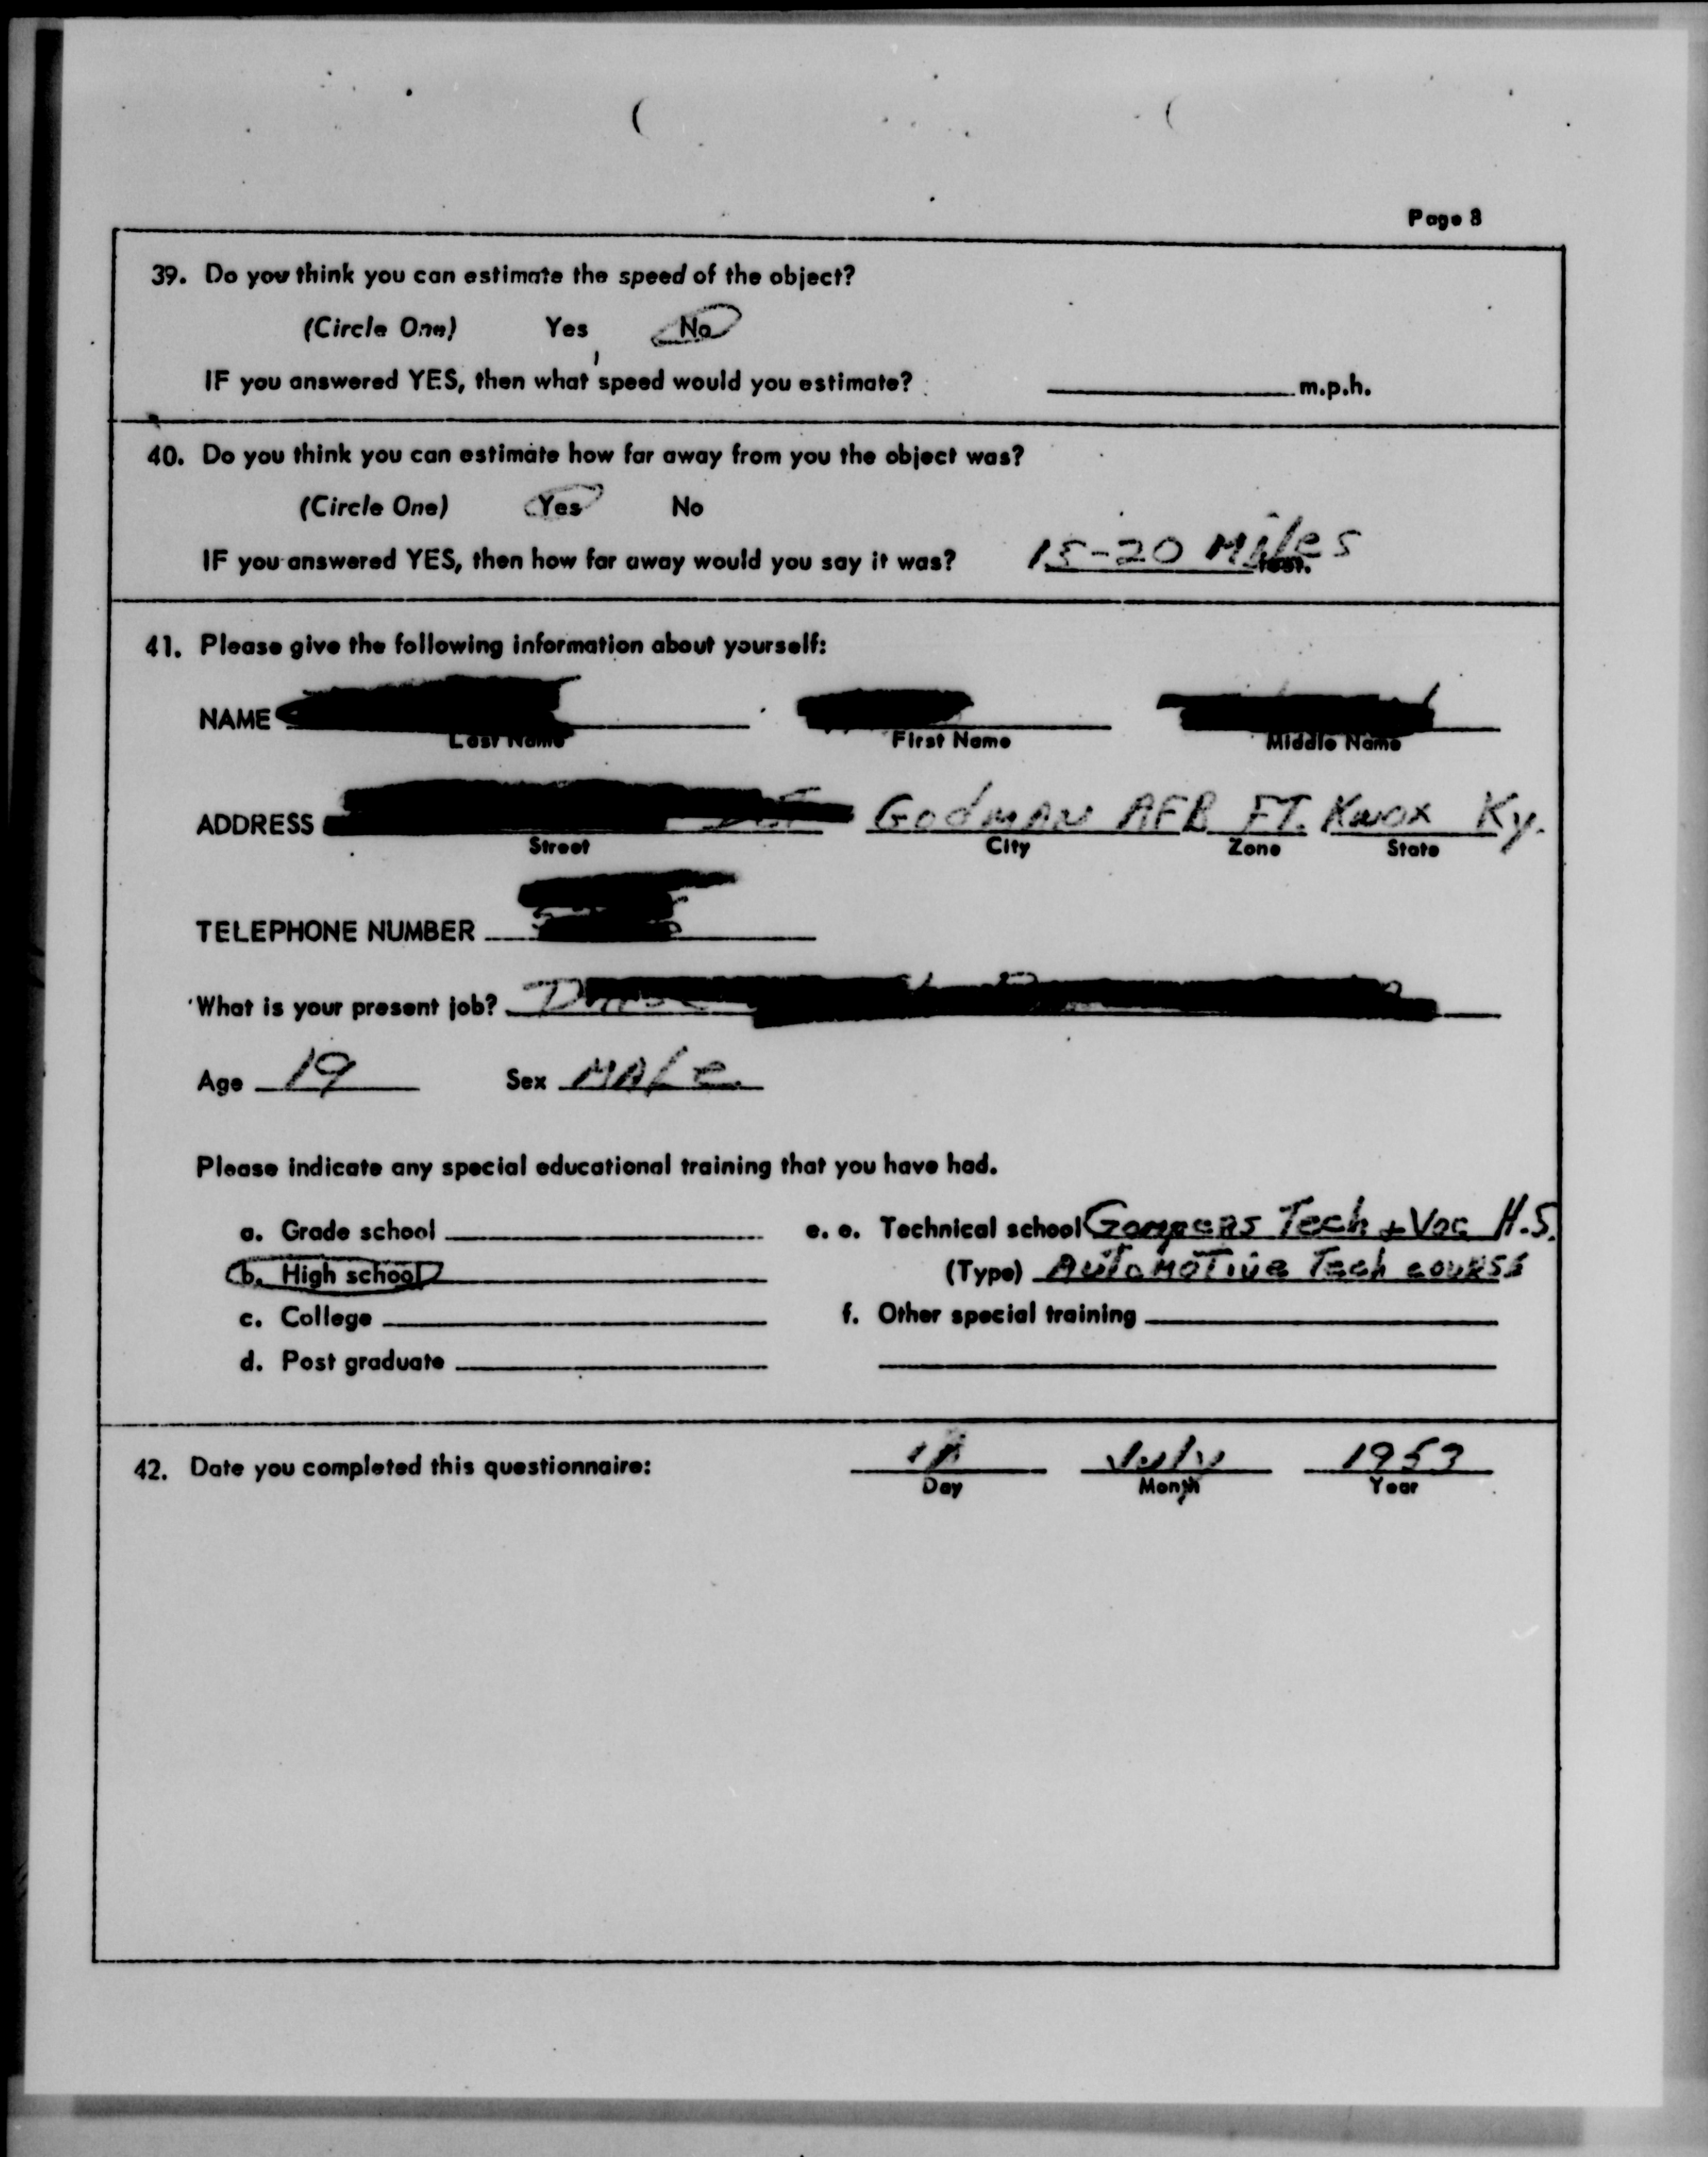 Page 8
39. Do you think you can estimate the speed of the object?
(Circle One) Yes No
IF you answered YES, then what speed would you estimate? m.p.h.
40. Do you think you can estimate how far away from you the object was?
(Circle One) Yes No
IF you answered YES, then how far away would you say it was? 15-20 Miles
41. Please give the following information about yourself:
NAME
Last Name First Name Middle Name
ADDRESS Godman AFB FT. Knox Ky.
Street City Zone State
TELEPHONE NUMBER
What is your present job?
Age 19 Sex MALe
Please indicate any special educational training that you have had.
a. Grade school e. e. Technical school Gompers Tech + Voc H.S.
b. High school (Type) Automotive Tech course
c. College f. Other special training
d. Post graduate
42. Date you completed this questionnaire: July 1953
Day Month Year